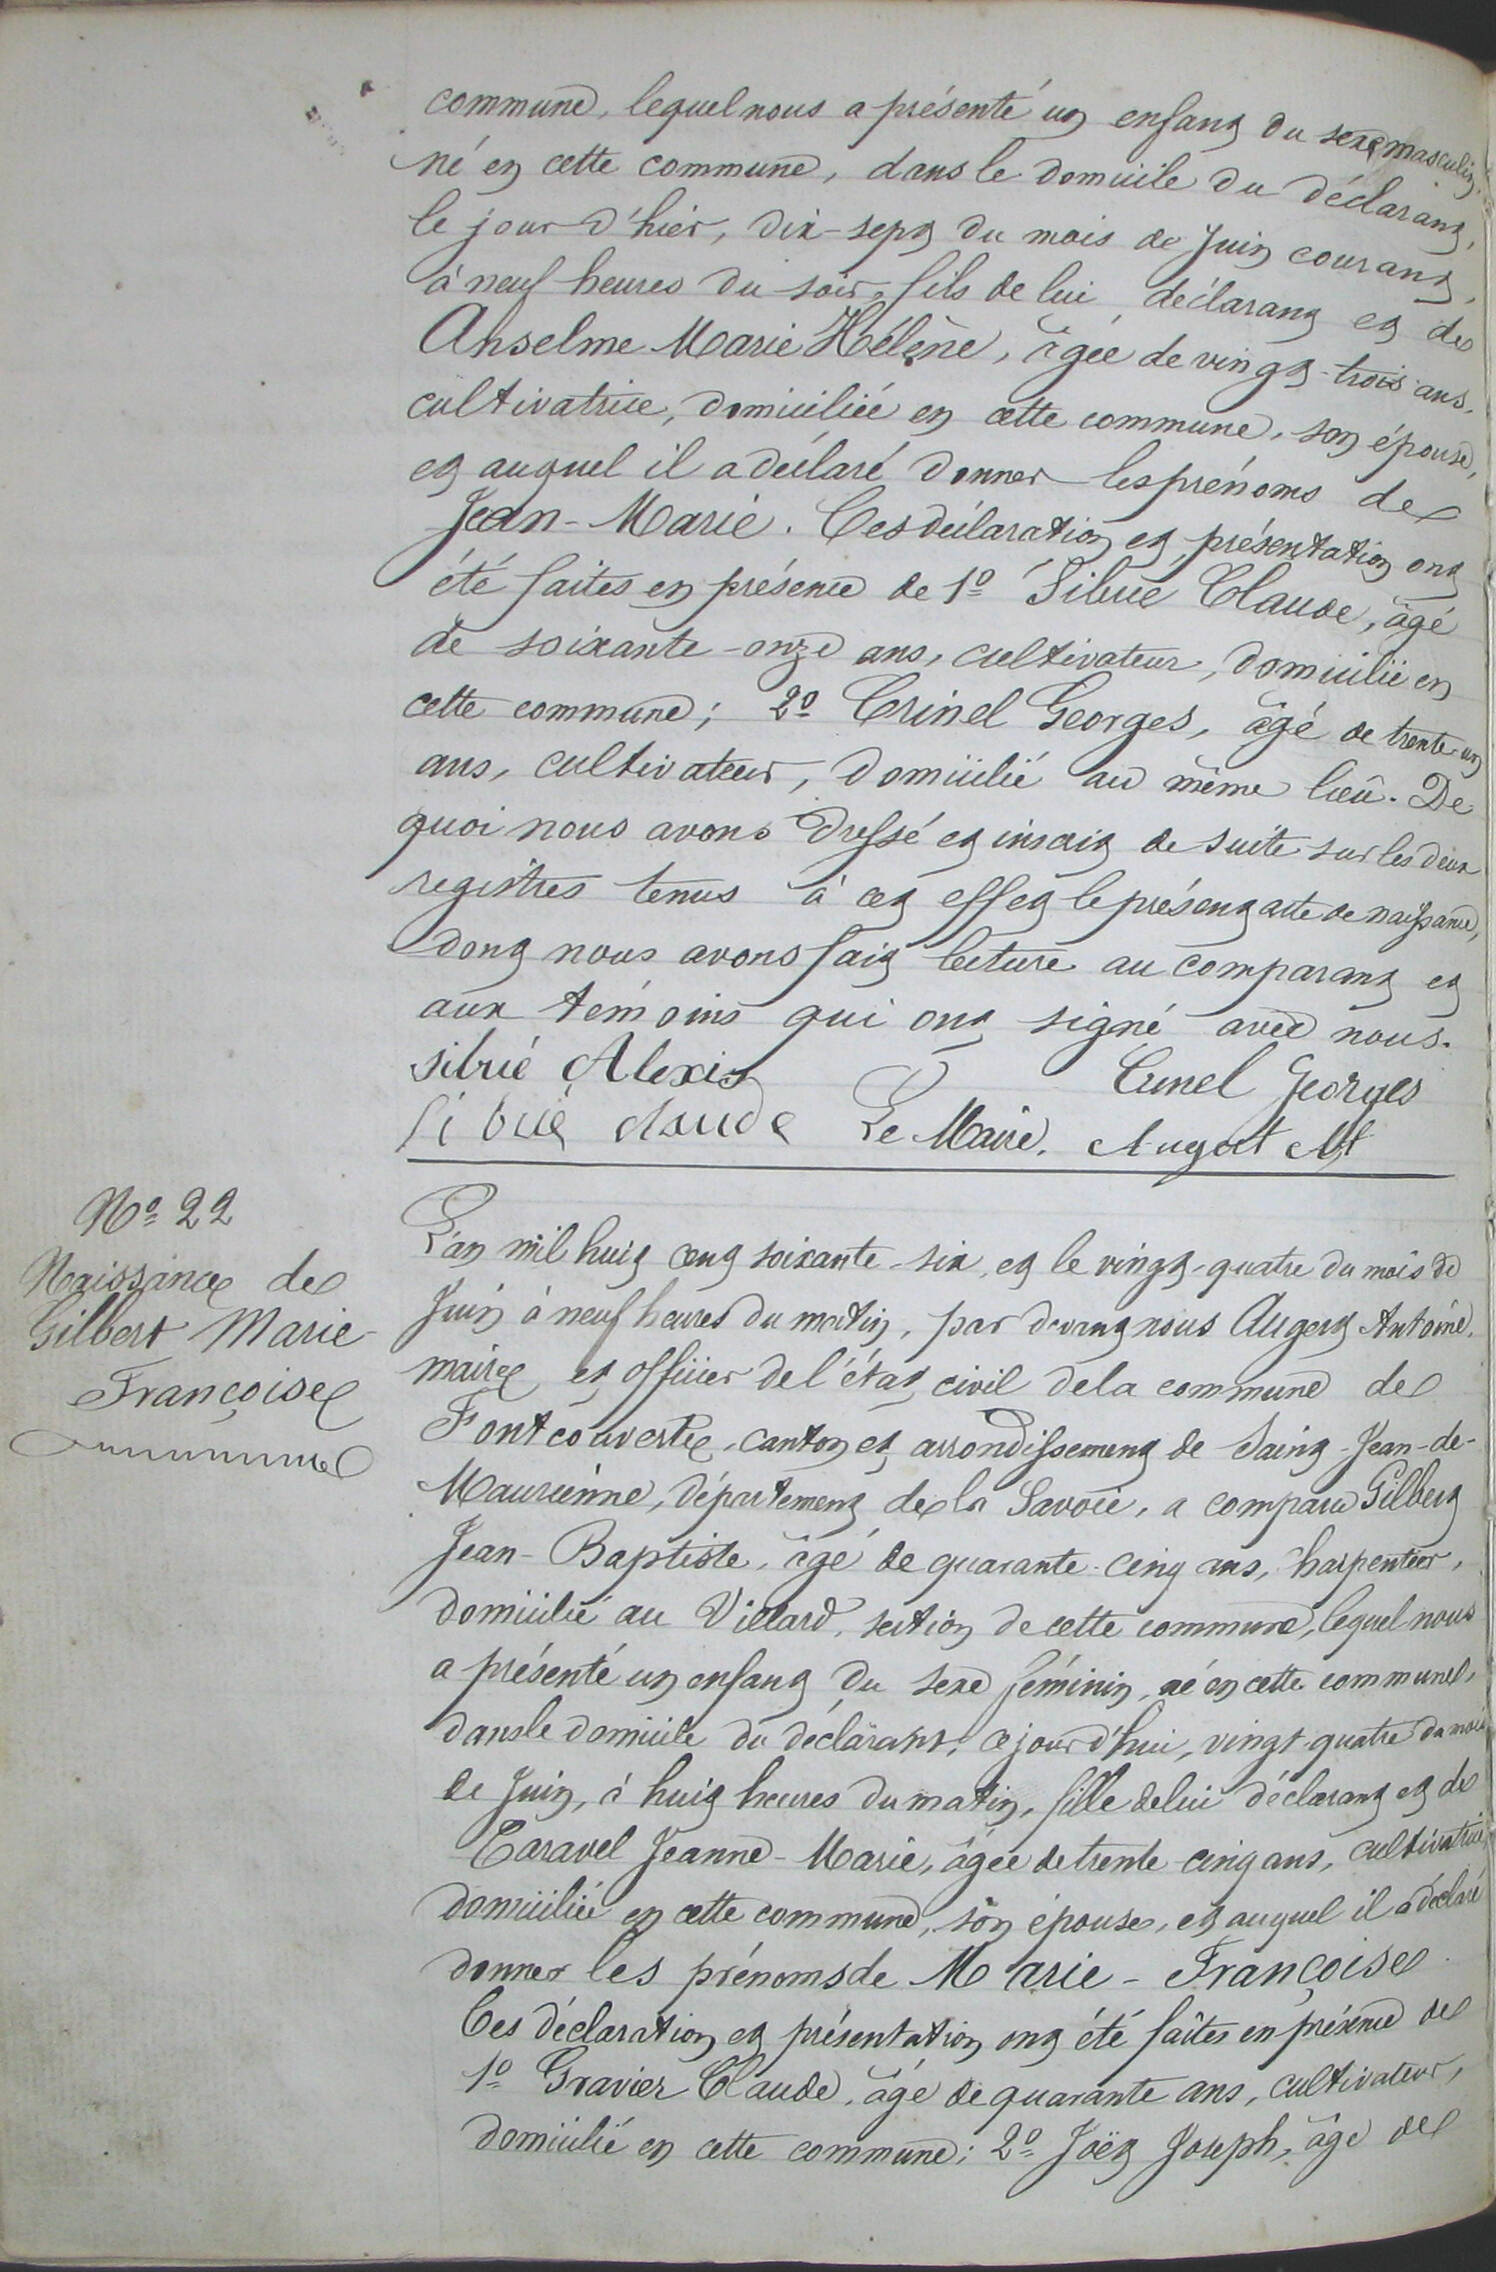 commune, lequel nous a présenté un enfant du sexe masculin,
né en cette commune, dans le domicile du déclarant,
le jour d'hier, dix-sept du mois de Juin courant,
à neuf heures du soir, fils de lui déclarant et de
Anselme Marie Hélène, âgée de vingt-trois ans,
cultivatrice, domiciliée en cette commune, son épouse,
et auquel il a déclaré donner les prénoms de
Jean-Marie. Ces déclaration et présentation ont
été faites en présence de 1º Sibué Claude, âgé
de soixante-onze ans, cultivateur, domicilié en
cette commune; 2º Crinel Georges, âgé de trente-un
ans, cultivateur, domicilié au même lieu. De
quoi nous avons dressé et inscrit de suite sur les deux
registres tenus à cet effet le présent acte de naissance,
dont nous avons fait lecture au comparant et
aux témoins qui ont signé avec nous.
Sibué Alexis
Crinel Georges
Sibué claude Le Maire. Augert At
Nº 22
Naissance de
Gilbert Marie
Françoise
L'an mil huit cent soixante-six, et le vingt-quatre du mois de
Juin à neuf heures du matin, par devant nous Augert Antoine,
maire et officier de l'état civil de la commune de
Fontcouverte, canton et arrondissement de Saint-Jean-de-
Maurienne, département de la Savoie, a comparu Gilbert
Jean-Baptiste, âgé de quarante-cinq ans, charpentier,
domicilié au Villard, section de cette commune, lequel nous
a présenté un enfant du sexe féminin, né en cette commune,
dans le domicile du déclarant, ce jourd'hui, vingt-quatre du mois
de Juin, à huit heures du matin, fille de lui déclarant et de
Taravel Jeanne-Marie, âgée de trente-cinq ans, cultivatrice,
domiciliée en cette commune, son épouse, et auquel il a déclaré
donner les prénoms de Marie-Françoise
Ces déclaration et présentation ont été faites en présence de
1º Gravier Claude, âgé de quarante ans, cultivateur,
domicilié en cette commune; 2º Joët Joseph, âgé de